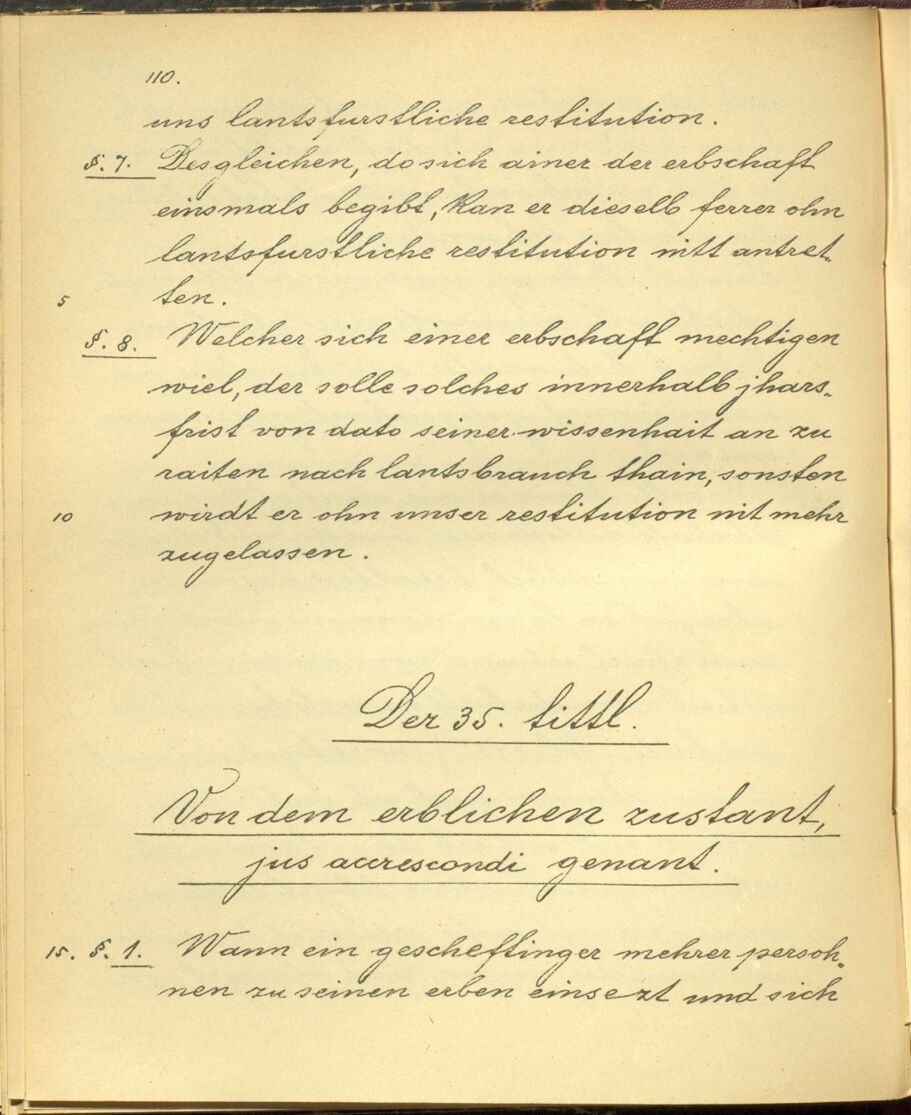 110.
uns lantsfurstliche restitution.
§. 7. Desgleichen, do sich ainer der erbschaft
einsmals begibt, kan er dieselb ferrer ohn
lantsfurstliche restitution nitt antret„
5 ten.
§. 8. Welcher sich einer erbschaft mechtigen
wiel, der solle solches innerhalb jhars„
frist von dato seiner wissenhait an zu
raiten nach lantsbrauch thain, sonsten
10 wirdt er ohn unser restitution nit mehr
zugelassen.
Der 35. tittl.
Von dem erblichen zustant,
jus accrescondi genant.
15. §. 1. Wann ein gescheftinger mehrer persoh„
nen zu seinen erben einsezt und sich